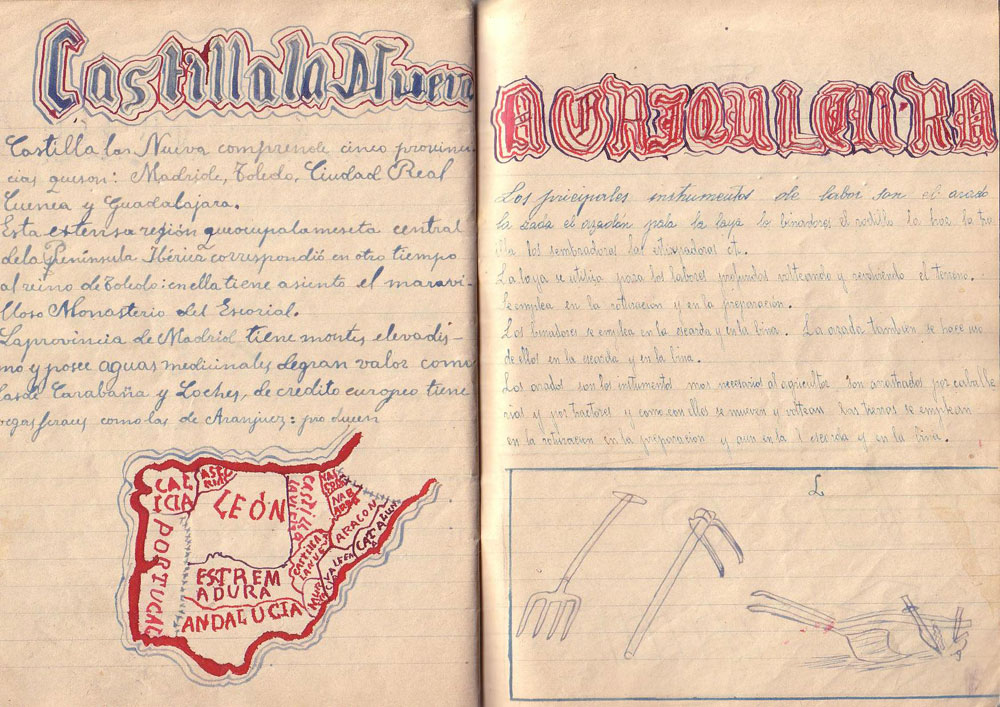 Castilla la Nueva
Castilla las Nueva comprende cinco provinci-
cias queson: Madride, Toledo, Ciudad Real
Cuenca y Guadalajara.
Esta extensa región queocupalameseta central
dela Península Ibérica correspondió en otro tiempo
al reino de Toledo: en ella tiene asiento el maravi-
lloso Monasterio del Escorial.
La provincia de Madrid tiene montes elevadís-
mo y posee aguas medicinales degran valor como
lasde Carabaña y Loches, de credito europeo tiene
vegas feraces comolas de Aranjuez: producen
GALICIA
ASTURIAS
LEÓN
CASTILLA LAVIEJA
NABARRA
ARAGON
CATALUÑA
PORTUGAL
CASTILLA LANUE
VALENCIA
ESTREMADURA
MURCIA
ANDALUCIA
AGRIQULTURA
Los pricipales instrumentos de labor son el arado
la azada el azadón pala la laya la binadores el rodillo la hoz la tri
lla los sembradores las estirpadoras et.
La laya se utiliza para las labores profundas volteando y revolviendo el terreno.
Se emplea en la roturacion y en la preparación.
Los binadores se emplea en la escarda y en la bina. La azada también se hace uso
de ellos en la escarda y en la bina.
Los arados son los instumento mas necesarios al agricultor son arrastrados por caballe
rias y por tractores y como con ellos se mueven y voltean las tierras se emplean
en la roturacion en la preparación y aun en la escarda y en la bina.
L